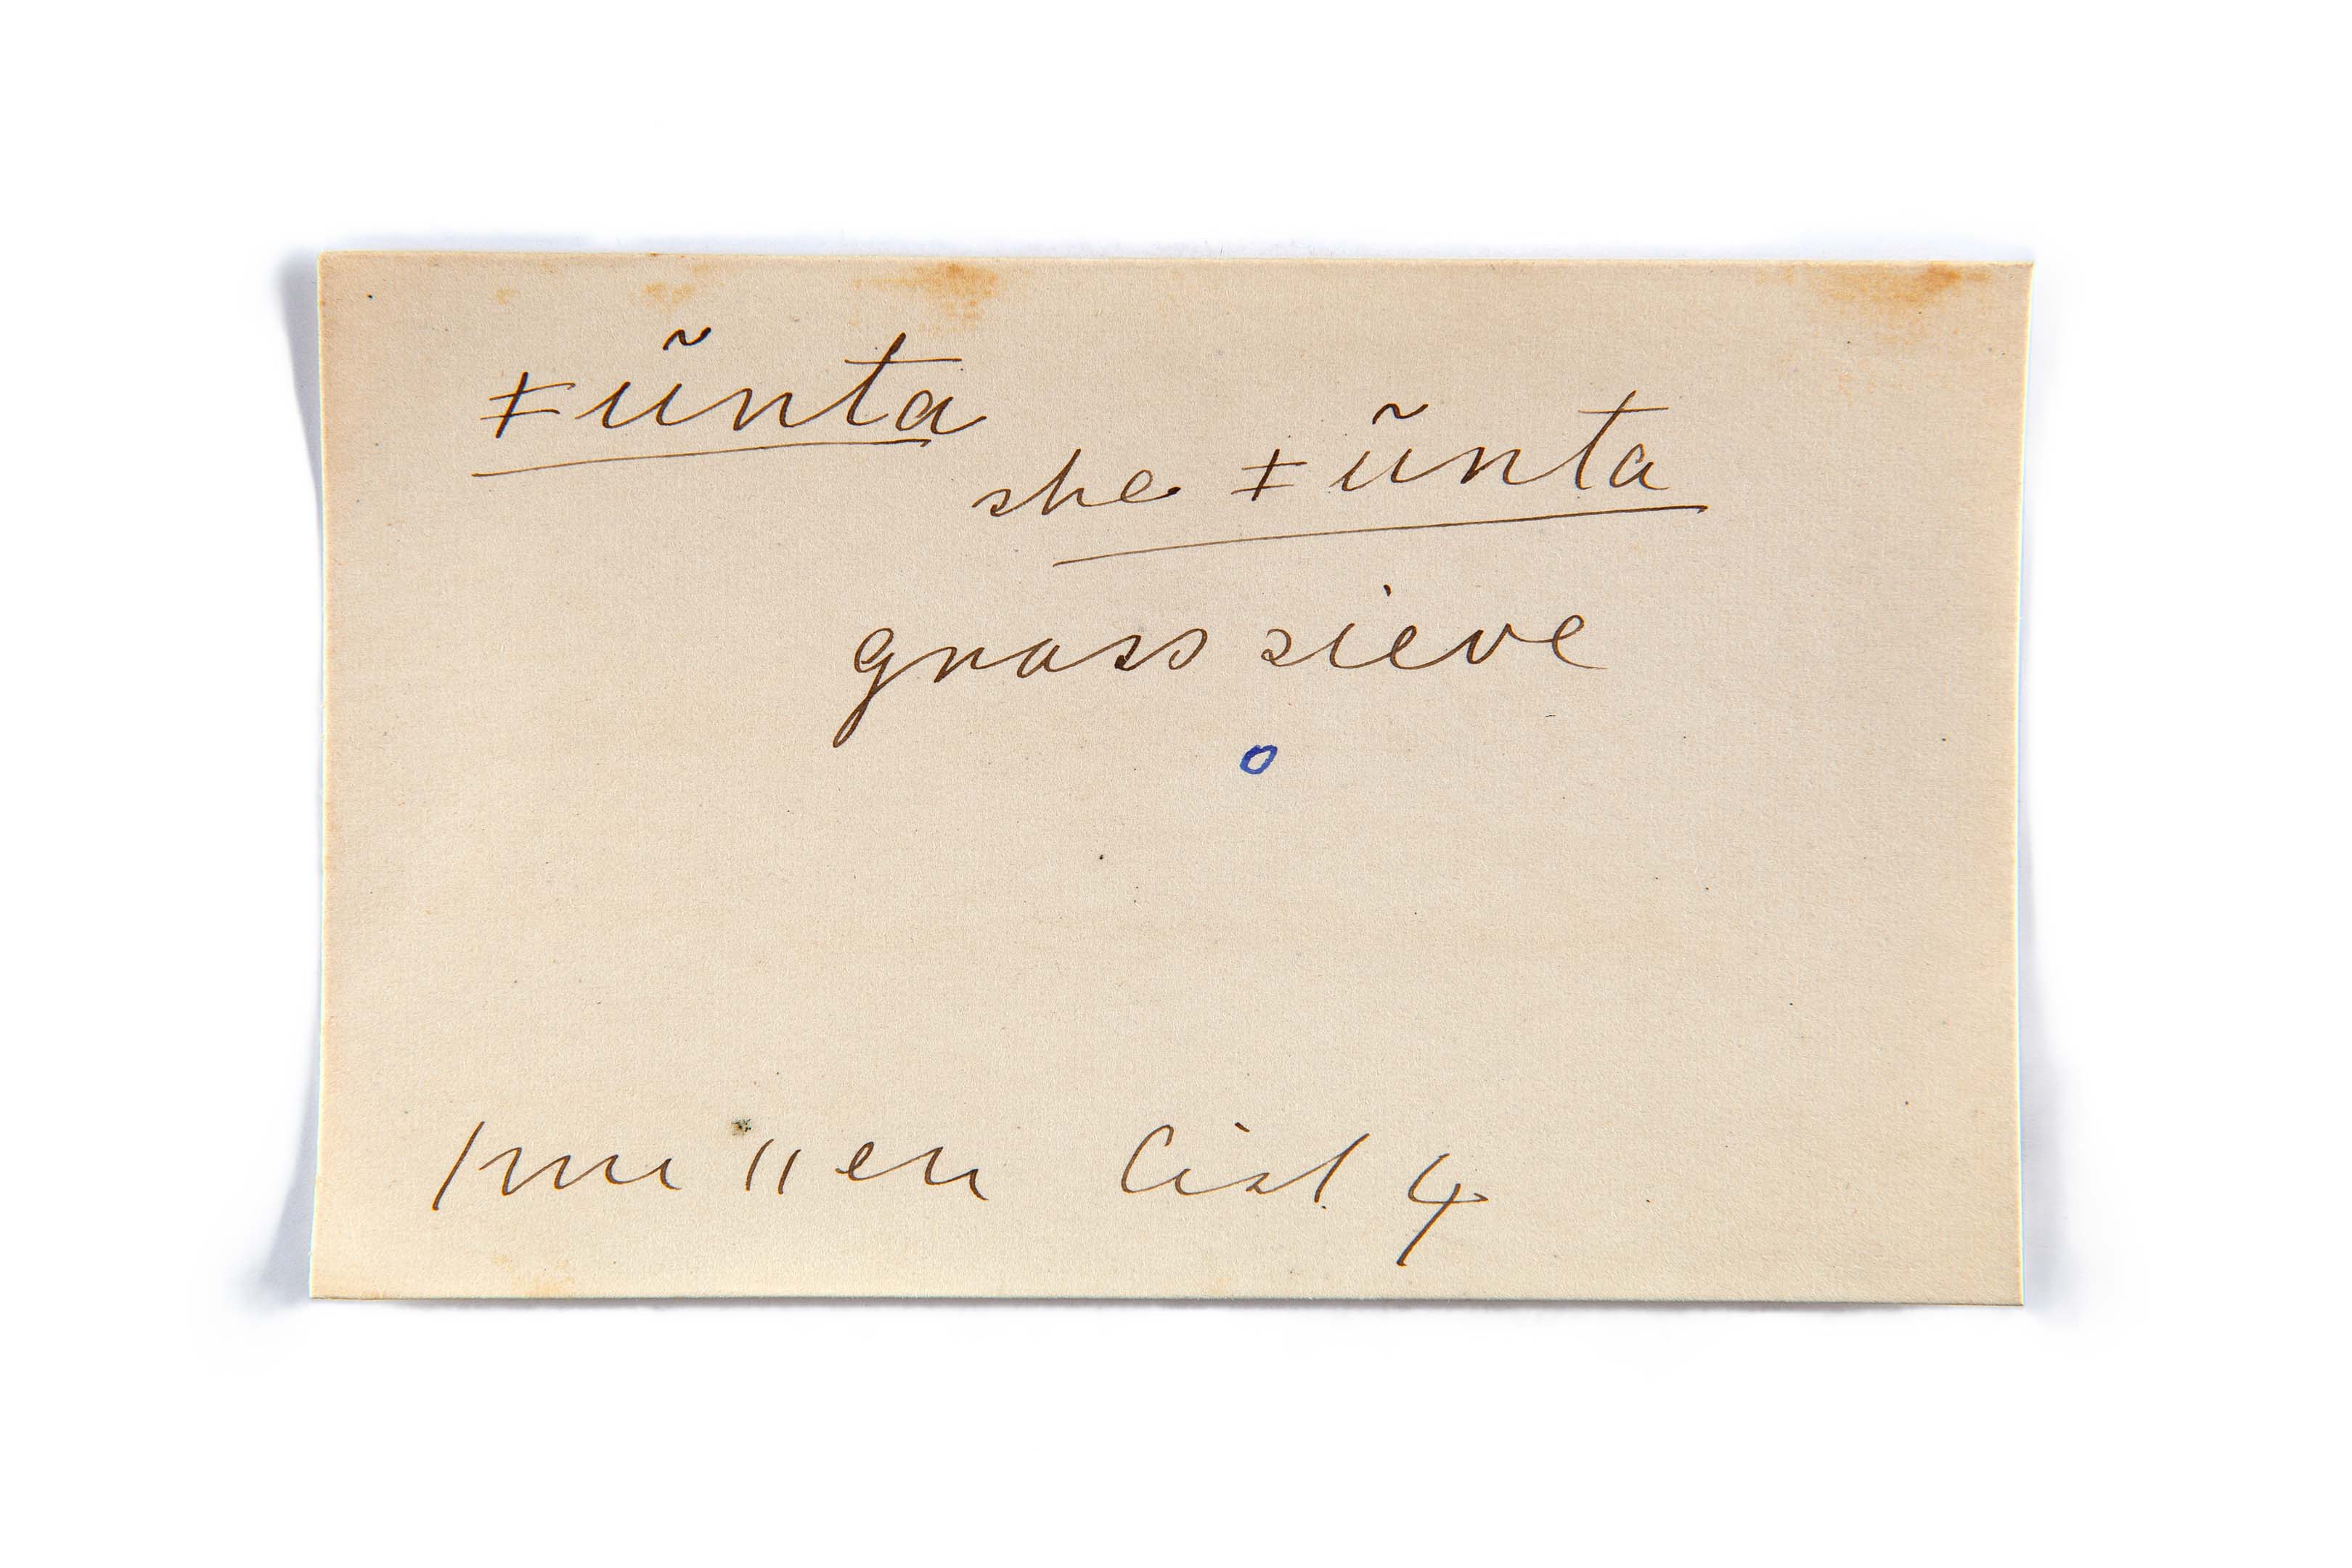 ǂũnta
she ǂũnta
grass sieve
|nu ||en List 4